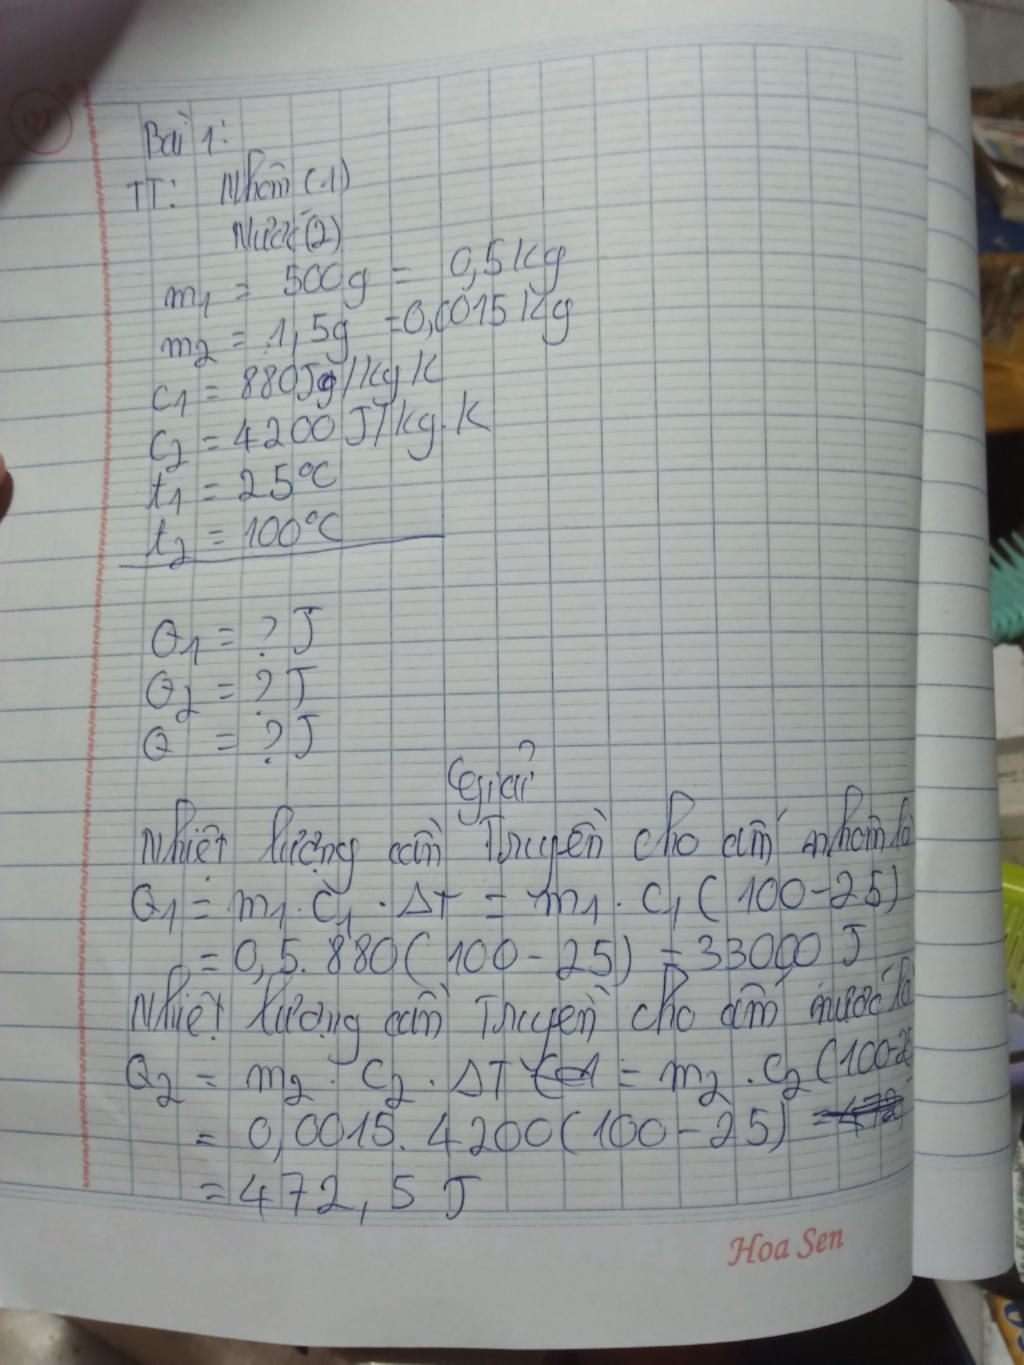 QT
Bài 1:
TT: Nhôm (1)
Nước (2)
m1 = 500g = 0,5 kg
m2 = 1,5g = 0,0015 kg
c1 = 880J/kg K
c2 = 4200 J/kg.K
t1 = 25°C
t2 = 100°C
Q1 = ? J
Q2 = ? J
Q = ? J
Giải
Nhiệt lượng cần Truyền cho ấm nhôm là
Q1 = m1. c1 . ΔT = m1 . c1 (100-25)
= 0,5. 880(100-25) = 33000 J
Nhiệt lượng cần Truyền cho ấm nước là
Q2 = m2 . c2 . ΔT = m2 . c2 (100-25
= 0,0015. 4200(100-25)
= 472,5 J
Hoa Sen